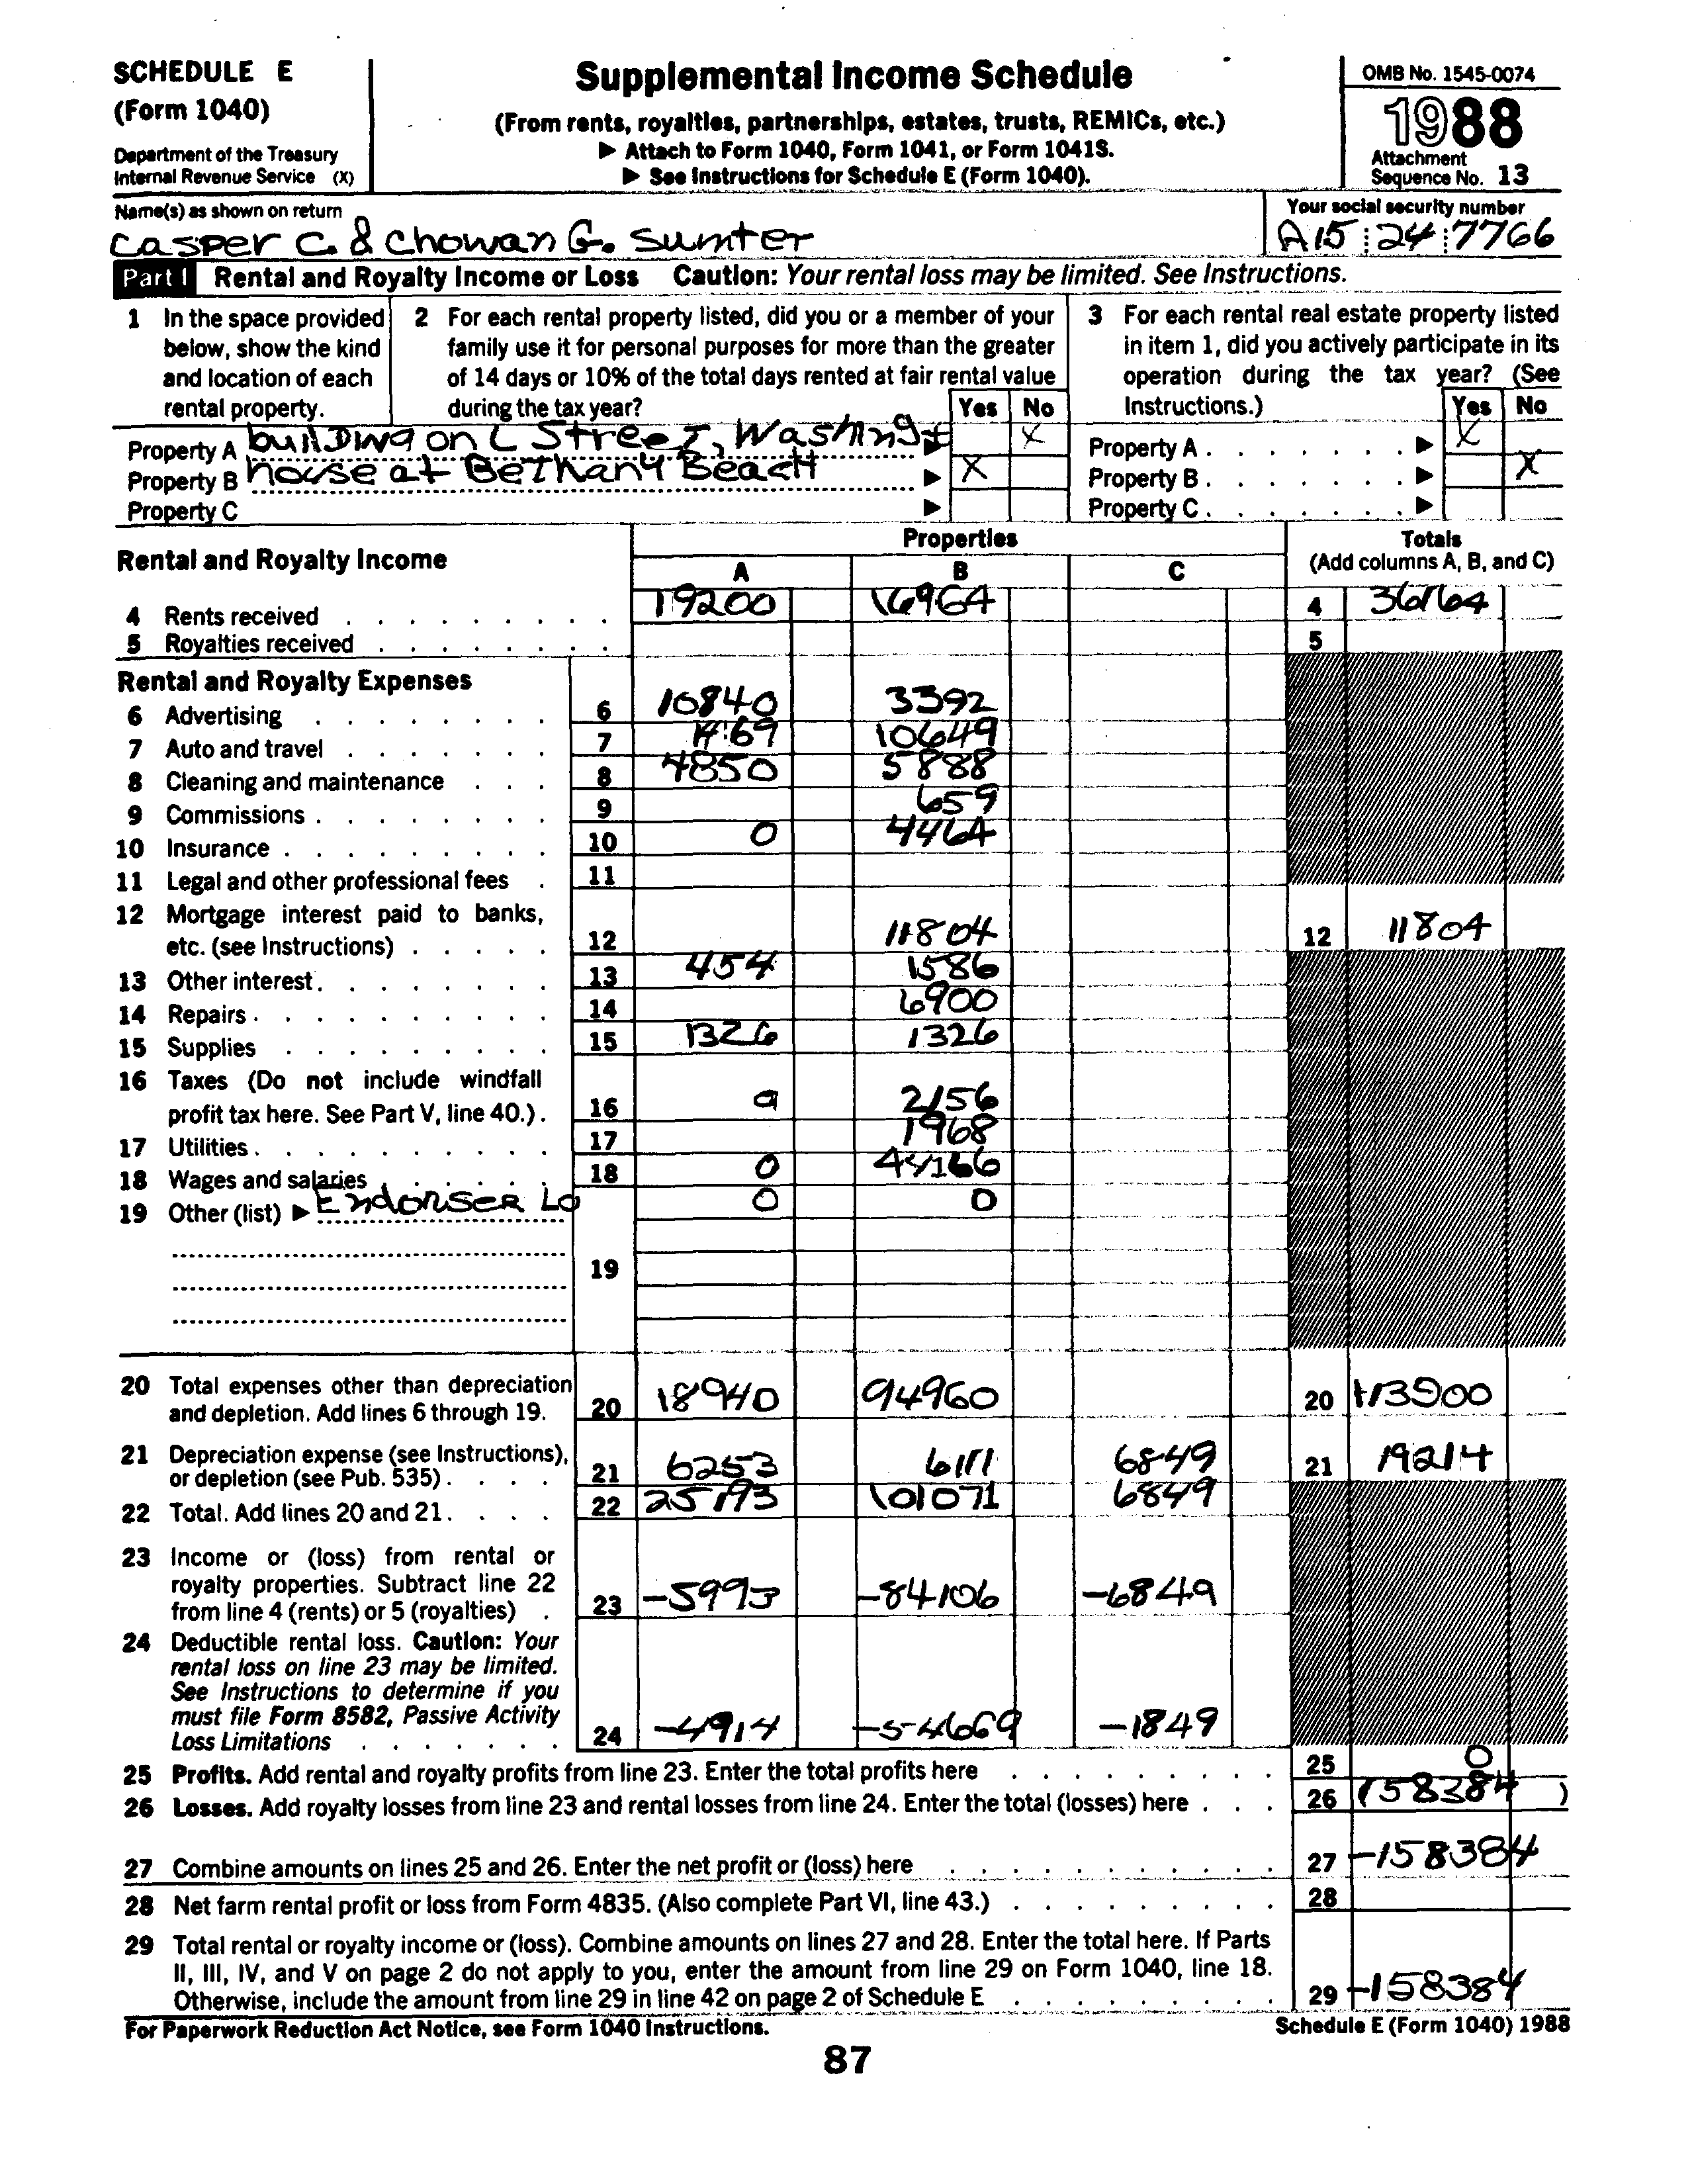 SCHEDULE E
(Form 1040)
Department of the Treasury
Internal Revenue Service (X)
Supplemental Income Schedule
(From rents, royalties, partnerships, estates, trusts, REMICs, etc.)
▶ Attach to Form 1040, Form 1041, or Form 1041S.
▶ See Instructions for Schedule E (Form 1040).
OMB No. 1545-0074
1988
Attachment
Sequence No. 13
Name(s) as shown on return
Casper C. & Chowan G. Sumter
Your social security number
A15 24 7766
Part I Rental and Royalty Income or Loss Caution: Your rental loss may be limited. See Instructions.
1 In the space provided below, show the kind and location of each rental property.
2 For each rental property listed, did you or a member of your family use it for personal purposes for more than the greater of 14 days or 10% of the total days rented at fair rental value during the tax year? Yes No
3 For each rental real estate property listed in item 1, did you actively participate in its operation during the tax year? (See Instructions.) Yes No
Property A building on L Street, Washingt ▶ X Property A ▶ X
Property B house at Bethany Beach ▶ X Property B ▶ X
Property C ▶ Property C ▶
Rental and Royalty Income
Properties
A B C
Totals
(Add columns A, B, and C)
4 Rents received 19200 16964 4 36164
5 Royalties received 5
Rental and Royalty Expenses
6 Advertising 6 10840 3392
7 Auto and travel 7 10649
8 Cleaning and maintenance 8 4850 5888
9 Commissions 9 659
10 Insurance 10 0 4464
11 Legal and other professional fees 11
12 Mortgage interest paid to banks, etc. (see Instructions) 12 11804 12 11804
13 Other interest 13 454 1586
14 Repairs 14 6900
15 Supplies 15 1326 1326
16 Taxes (Do not include windfall profit tax here. See Part V, line 40.) 16 2156
17 Utilities 17 1968
18 Wages and salaries 18 0 44166
19 Other (list) ▶ Endorser Lo 0 0
19
20 Total expenses other than depreciation and depletion. Add lines 6 through 19. 20 18940 94960 20 113900
21 Depreciation expense (see Instructions), or depletion (see Pub. 535) 21 6253 6111 6849 21 19214
22 Total. Add lines 20 and 21 22 25193 101071 6849
23 Income or (loss) from rental or royalty properties. Subtract line 22 from line 4 (rents) or 5 (royalties) 23 -5993 -84106 -6849
24 Deductible rental loss. Caution: Your rental loss on line 23 may be limited. See Instructions to determine if you must file Form 8582, Passive Activity Loss Limitations 24 -4914 -54669 -1849
25 Profits. Add rental and royalty profits from line 23. Enter the total profits here 25 0
26 Losses. Add royalty losses from line 23 and rental losses from line 24. Enter the total (losses) here 26 (58384 )
27 Combine amounts on lines 25 and 26. Enter the net profit or (loss) here 27 -158384
28 Net farm rental profit or loss from Form 4835. (Also complete Part VI, line 43.) 28
29 Total rental or royalty income or (loss). Combine amounts on lines 27 and 28. Enter the total here. If Parts II, III, IV, and V on page 2 do not apply to you, enter the amount from line 29 on Form 1040, line 18. Otherwise, include the amount from line 29 in line 42 on page 2 of Schedule E 29 -158384
For Paperwork Reduction Act Notice, see Form 1040 Instructions.
Schedule E (Form 1040) 1988
87